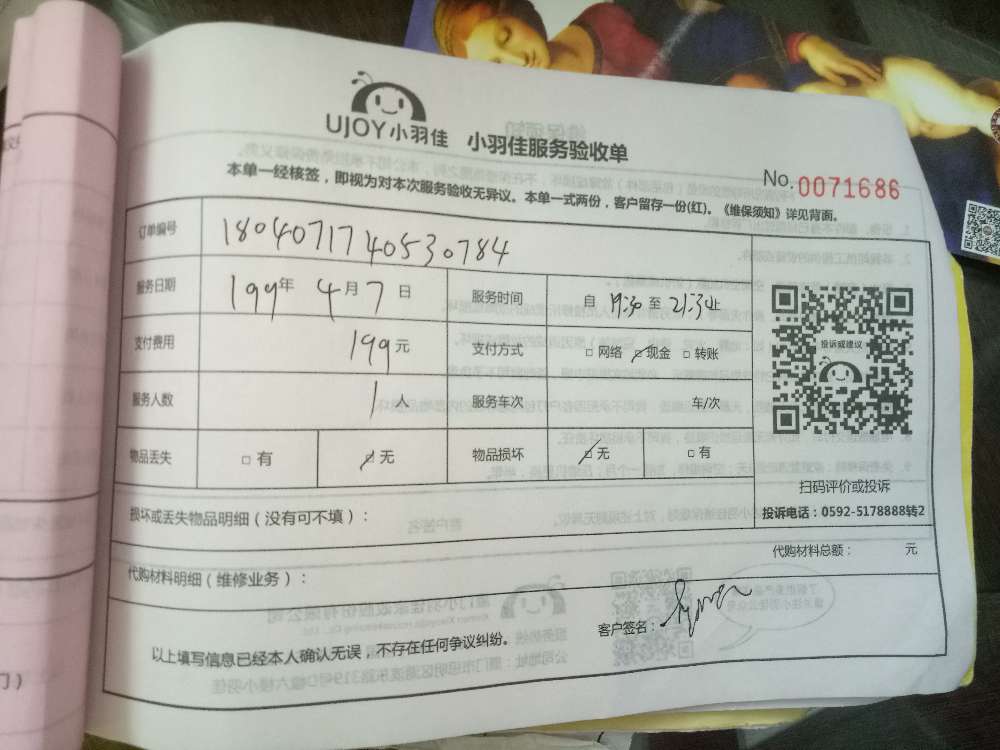 UJOY小羽佳 小羽佳服务验收单
No.0071686
本单一经核签，即视为对本次服务验收无异议。本单一式两份，客户留存一份(红)。《维保须知》详见背面。
订单编号 1804071740530784
服务日期 199年 4月7日 服务时间 自 19:30 至 21:30止
支付费用 199元 支付方式 □网络 □现金 □转账
服务人数 1人 服务车次 车/次
物品丢失 □有 □无 物品损坏 □无 □有
投诉或建议
扫码评价或投诉
投诉电话：0592-5178888转2
损坏或丢失物品明细（没有可不填）：
代购材料总额： 元
代购材料明细（维修业务）：
客户签名：
以上填写信息已经本人确认无误，不存在任何争议纠纷。